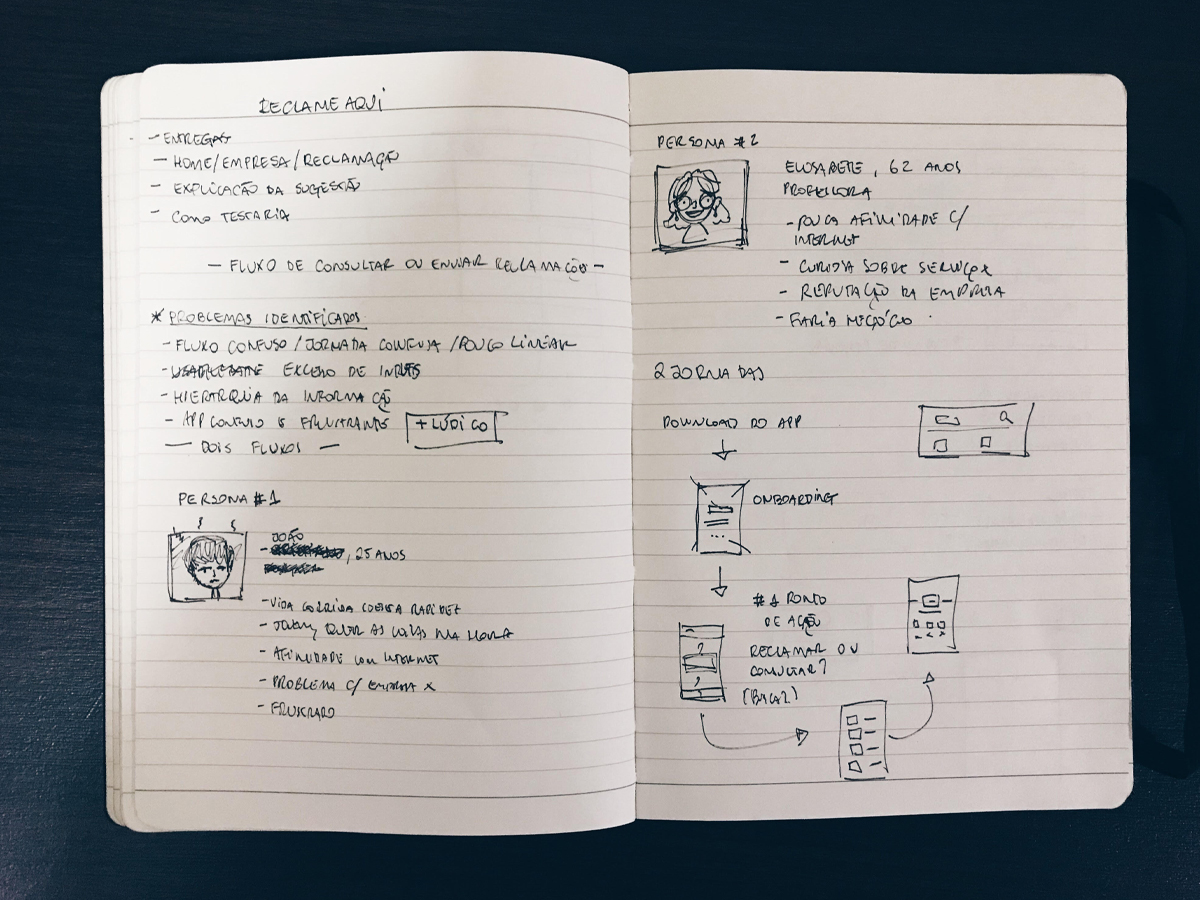 RECLAME AQUI
- ENTREGAS
- HOME/EMPRESA/RECLAMAÇÃO
- EXPLICAÇÃO DA SUGESTÃO
- COMO TESTARIA
- FLUXO DE CONSULTAR OU ENVIAR RECLAMAÇÕES -
* PROBLEMAS IDENTIFICADOS
- FLUXO CONFUSO / JORNADA CONFUSA / POUCO LINEAR
- EXCESSO DE INPUTS
- HIERARQUIA DA INFORMAÇÃO
- APP CONFUSO E FRUSTRANTE
+ LÚDICO
- DOIS FLUXOS -
PERSONA #1
JOÃO
- , 25 ANOS
- VIDA CORRIDA RAPIDEZ
- JOVEM, QUER AS COISAS NA HORA
- AFINIDADE COM INTERNET
- PROBLEMA C/ EMPRESA X
- FRUSTRADO
PERSONA #2
ELISABETE, 62 ANOS
PROFESSORA
- POUCA AFINIDADE C/
INTERNET
- CURIOSA SOBRE SERVIÇO X
- REPUTAÇÃO DA EMPRESA
- FARIA NEGÓCIO
2 JORNADAS
DOWNLOAD DO APP
ONBOARDING
#1 PONTO
DE AÇÃO
RECLAMAR OU
CONSULTAR?